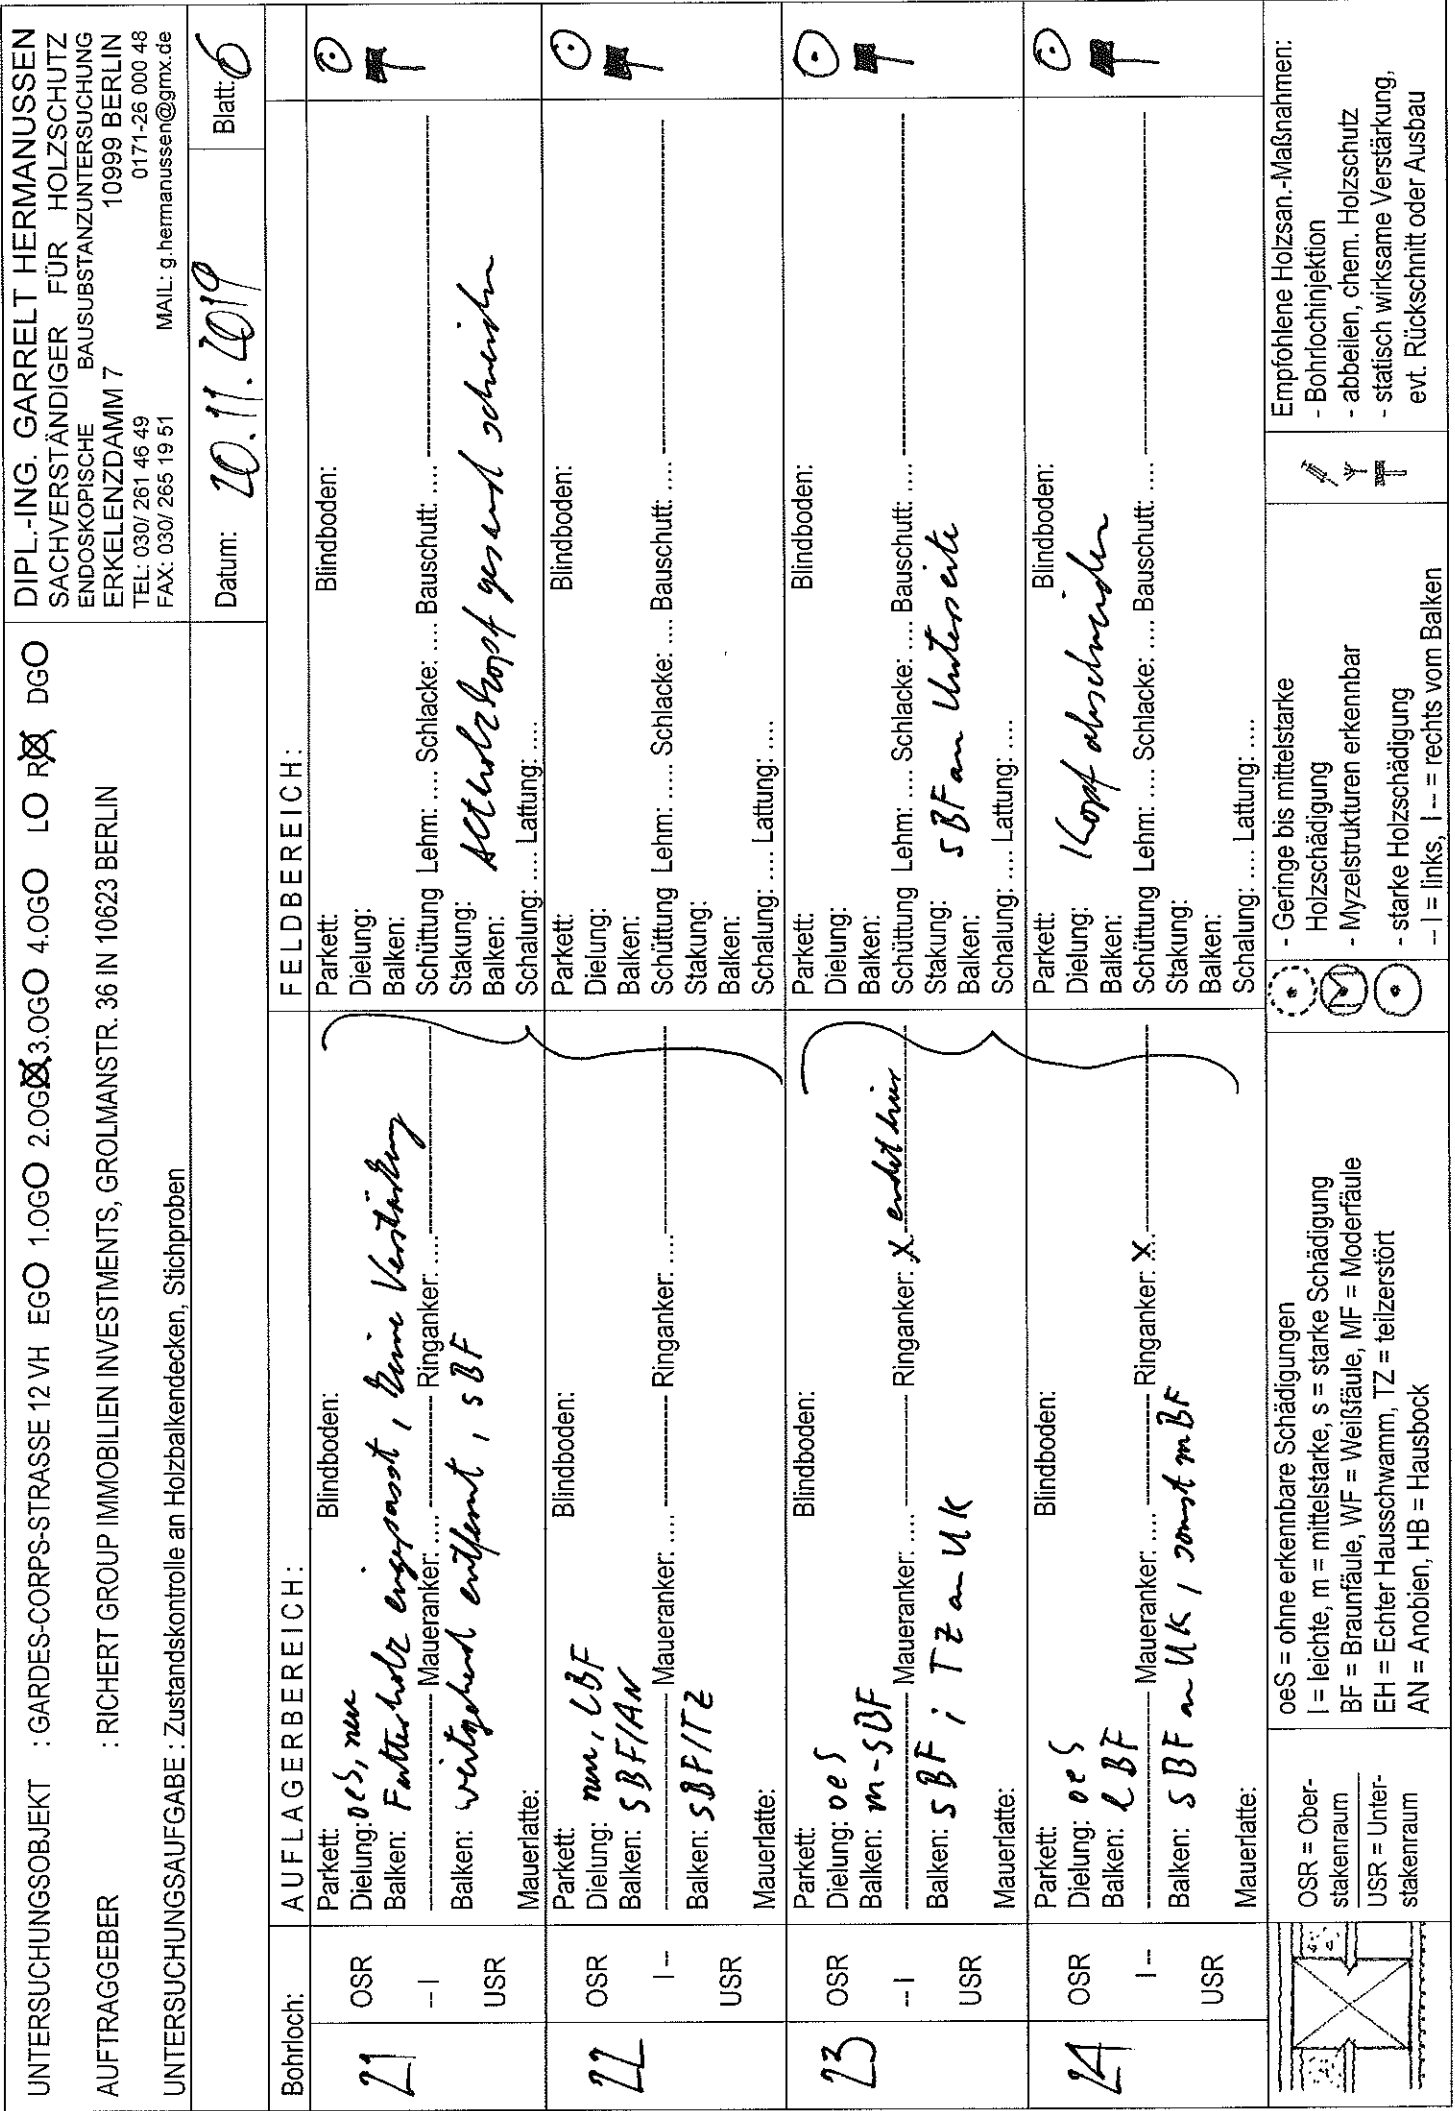 UNTERSUCHUNGSOBJEKT : GARDES-CORPS-STRASSE 12 VH EGO 1.OGO 2.OG☒ 3.OGO 4.OGO LO R☒ DGO
AUFTRAGGEBER : RICHERT GROUP IMMOBILIEN INVESTMENTS, GROLMANSTR. 36 IN 10623 BERLIN
UNTERSUCHUNGSAUFGABE : Zustandskontrolle an Holzbalkendecken, Stichproben
DIPL.-ING. GARRELT HERMANUSSEN
SACHVERSTÄNDIGER FÜR HOLZSCHUTZ
ENDOSKOPISCHE BAUSUBSTANZUNTERSUCHUNG
ERKELENZDAMM 7 10999 BERLIN
TEL: 030/ 261 46 49 0171-26 000 48
FAX: 030/ 265 19 51 MAIL: g.hermanussen@gmx.de
Datum: 20.11.2019 Blatt: 6
Bohrloch: AUFLAGERBEREICH: FELDBEREICH:
21
OSR
-- I
USR
Parkett: Blindboden:
Dielung: oeS, neu
Balken: Futterholz eingepasst, keine Verstärkung
---------- Maueranker: .... ---------- Ringanker: .... ----------
Balken: weitgehend entfernt, sBF
Mauerlatte:
Parkett: Blindboden:
Dielung:
Balken:
Schüttung Lehm: .... Schlacke: .... Bauschutt: .... ----------
Stakung: Altholzkopf gesund schneiden
Balken:
Schalung: .... Lattung: ....
22
OSR
I --
USR
Parkett: Blindboden:
Dielung: neu, lBF
Balken: sBF/AN
---------- Maueranker: .... ---------- Ringanker: .... ----------
Balken: sBF/TZ
Mauerlatte:
Parkett: Blindboden:
Dielung:
Balken:
Schüttung Lehm: .... Schlacke: .... Bauschutt: .... ----------
Stakung:
Balken:
Schalung: .... Lattung: ....
23
OSR
-- I
USR
Parkett: Blindboden:
Dielung: oeS
Balken: m-sBF
---------- Maueranker: .... ---------- Ringanker: X endet hier
Balken: sBF; TZ an UK
Mauerlatte:
Parkett: Blindboden:
Dielung:
Balken:
Schüttung Lehm: .... Schlacke: .... Bauschutt: .... ----------
Stakung: sBF an Unterseite
Balken:
Schalung: .... Lattung: ....
24
OSR
I --
USR
Parkett: Blindboden:
Dielung: oeS
Balken: lBF
---------- Maueranker: .... ---------- Ringanker: X ----------
Balken: sBF an UK, sonst mBF
Mauerlatte:
Parkett: Blindboden:
Dielung: Kopf abschneiden
Balken:
Schüttung Lehm: .... Schlacke: .... Bauschutt: .... ----------
Stakung:
Balken:
Schalung: .... Lattung: ....
OSR = Ober-
stakenraum
USR = Unter-
stakenraum
oeS = ohne erkennbare Schädigungen
l = leichte, m = mittelstarke, s = starke Schädigung
BF = Braunfäule, WF = Weißfäule, MF = Moderfäule
EH = Echter Hausschwamm, TZ = teilzerstört
AN = Anobien, HB = Hausbock
- Geringe bis mittelstarke
Holzschädigung
M - Myzelstrukturen erkennbar
- starke Holzschädigung
-- I = links, I -- = rechts vom Balken
Empfohlene Holzsan.-Maßnahmen:
- Bohrlochinjektion
- abbeilen, chem. Holzschutz
- statisch wirksame Verstärkung,
evt. Rückschnitt oder Ausbau